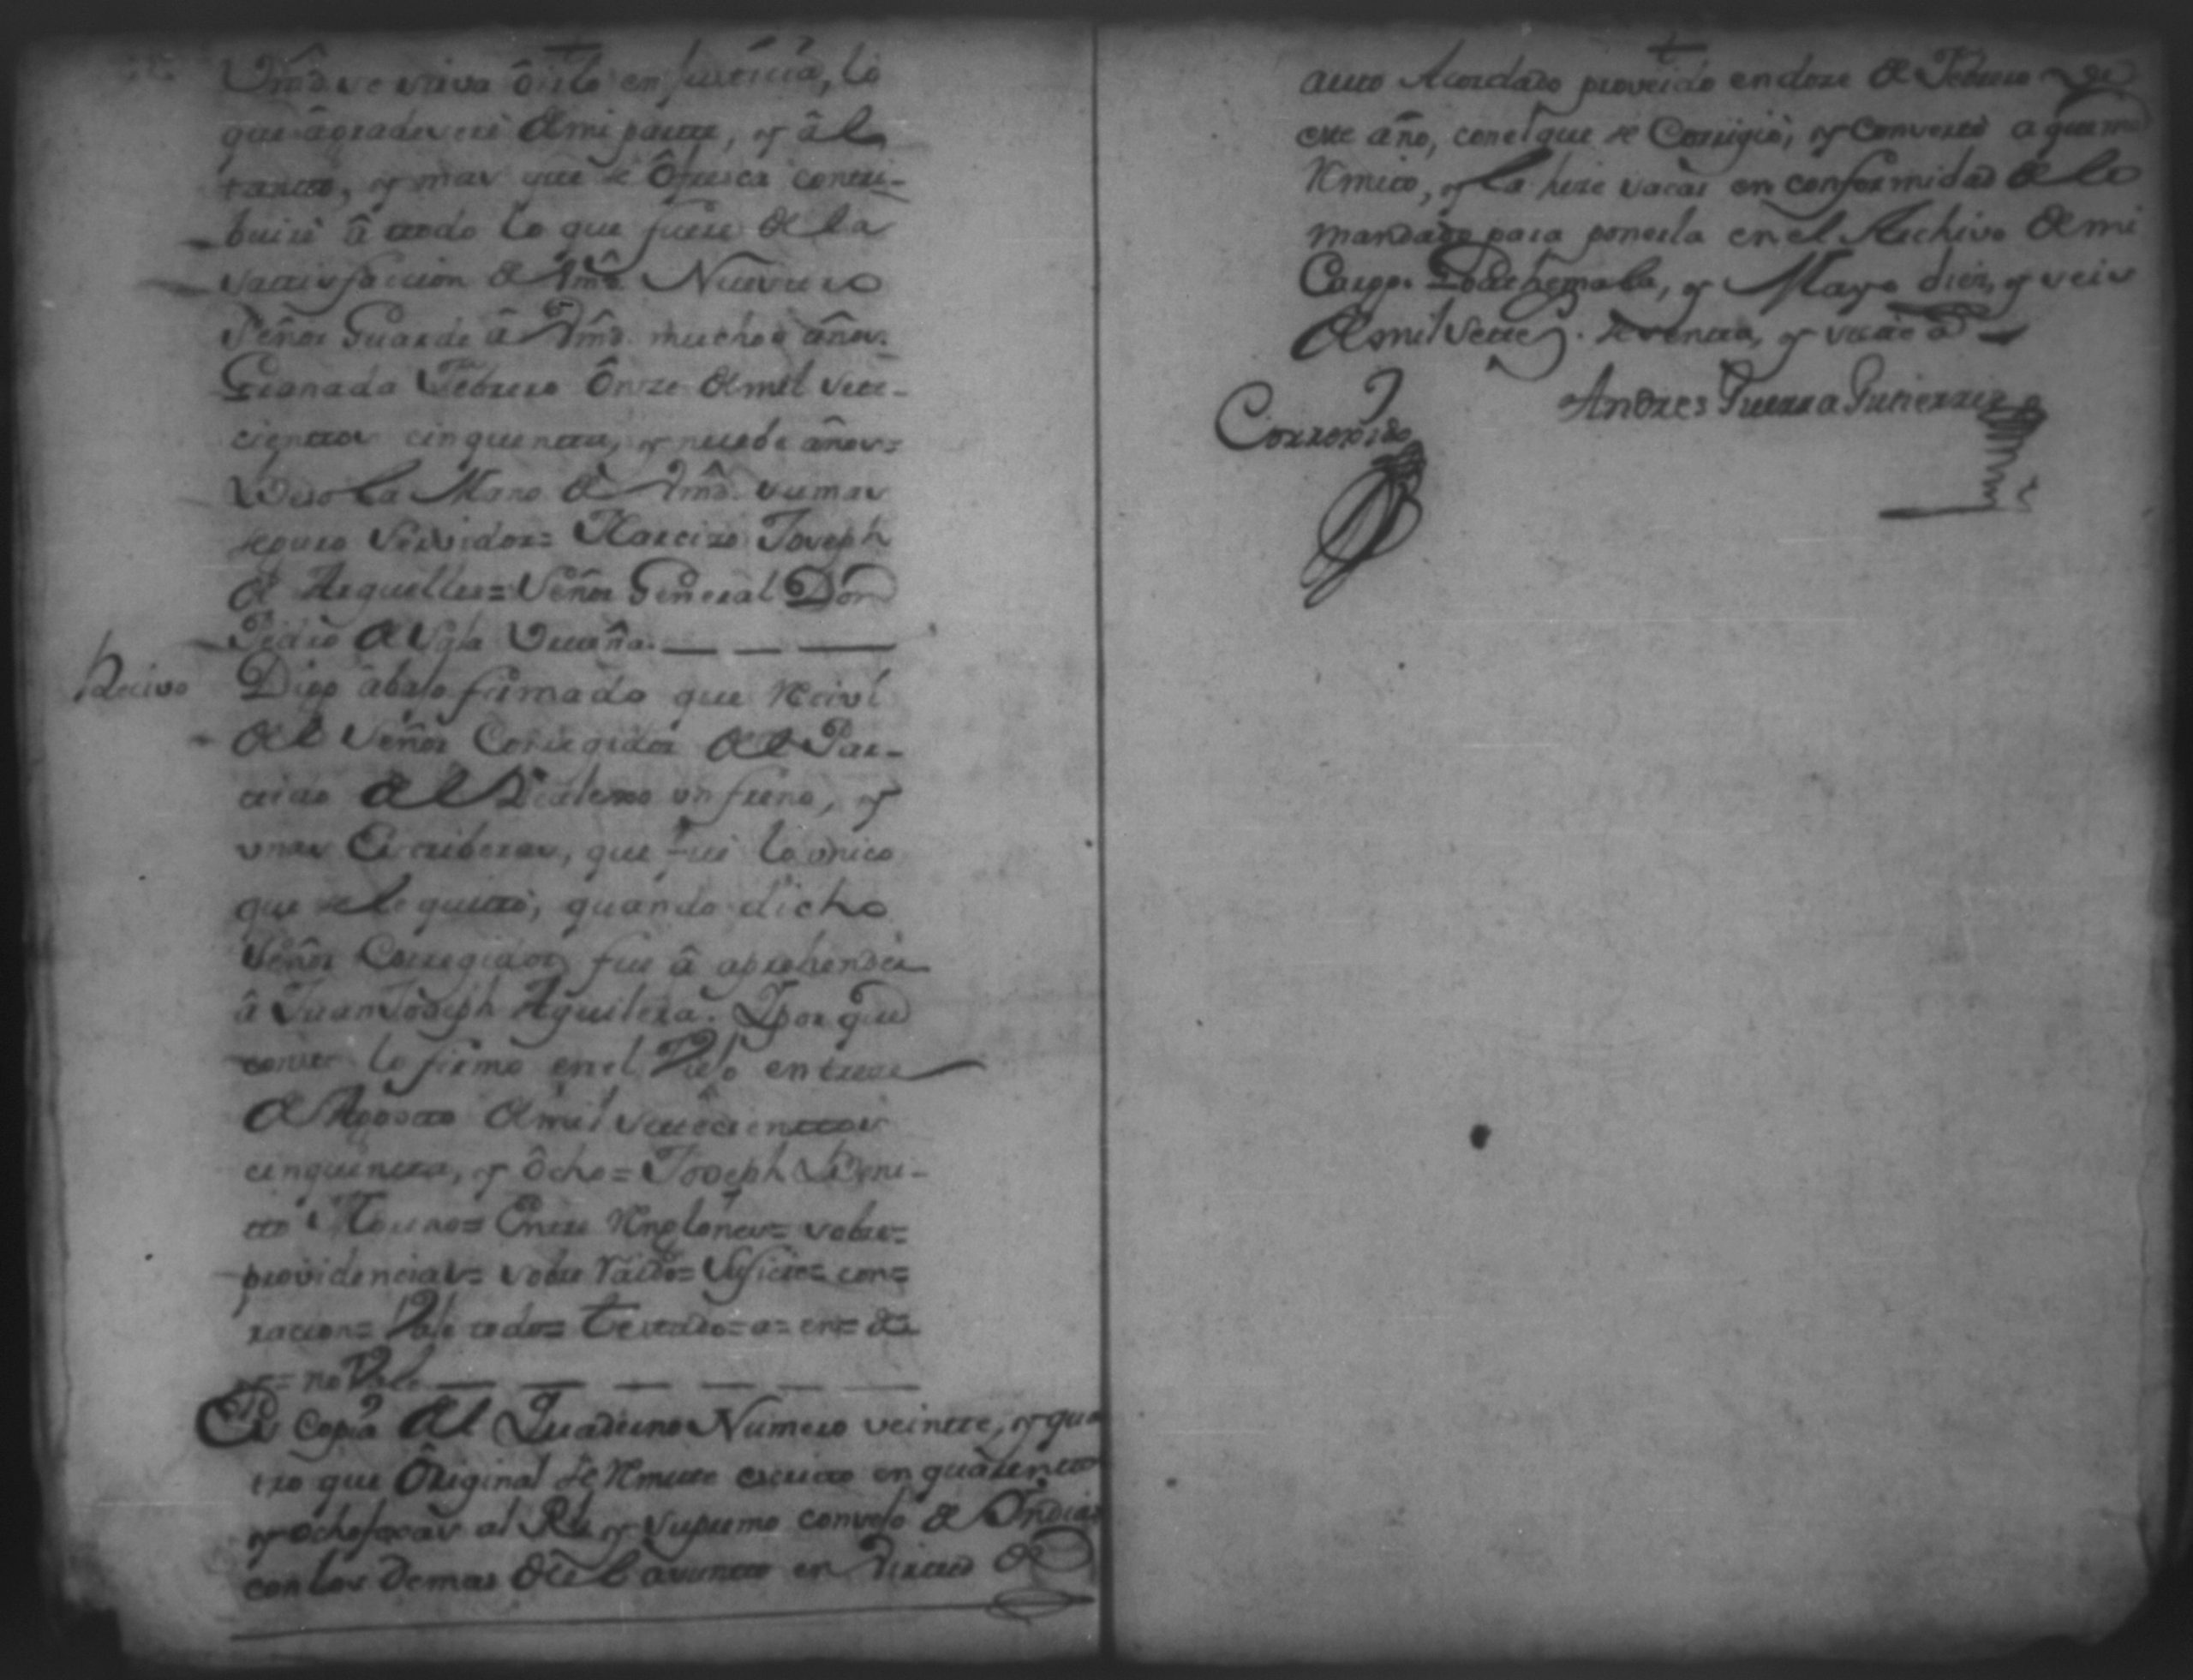 Vmd se sirva óirlo en justicia, lo
que âgradeceré de mi parte, y â lo
tanto, y mas que se Ôfresca contri-
buiré â todo lo que fuere de la
satisfaccion de Vmd. Nuestro
Señor Guarde â Vmd. muchos años.
Granada Febrero Ônze de mil sete-
cientos cinquenta, y nuebe años=
Beso la Mano de Vmd. su mas
seguro Servidor= Narcizo Joseph
de Arguelles= Señor General Don
Pedro de
Recivo
Digo âbajo firmado que Reciví
del Señor Corregidor del Par-
tido del un freno, y
unas Estriberas, que fué lo único
que se le quitó, quando dicho
Señor Corregidor fue â aprehender
â Juan Joseph Aguilera. Y por que
conste lo firmo en el Viejo en treze
de Agosto de mil setecientos
cinquenta, y Ôcho= Joseph Beni-
to = Entre Renglones= sobre=
providencias= sobre raido= con=
racion= Vale todo= testado= a= en= de
y= no Vale
Es Copia del Quaderno Numero veinte, y qua
tro que Original se Remite escrito en quarenta
y ocho foxas al Rl. y Supremo consejo de Indias
con los demas de el asunto en virtud de
auto Acordado proveido en doze de Febrero de
este año, con el que se Corrigió, y Concertó a que me
Remito, y la hize sacar en conformidad de lo
mandado para ponerla en el Archivo de mi
Cargo. Goathemala, y Mayo diez, y seis
de mil setes. sesenta, y siete as
Corregido
Andres Guerra Gutierrez